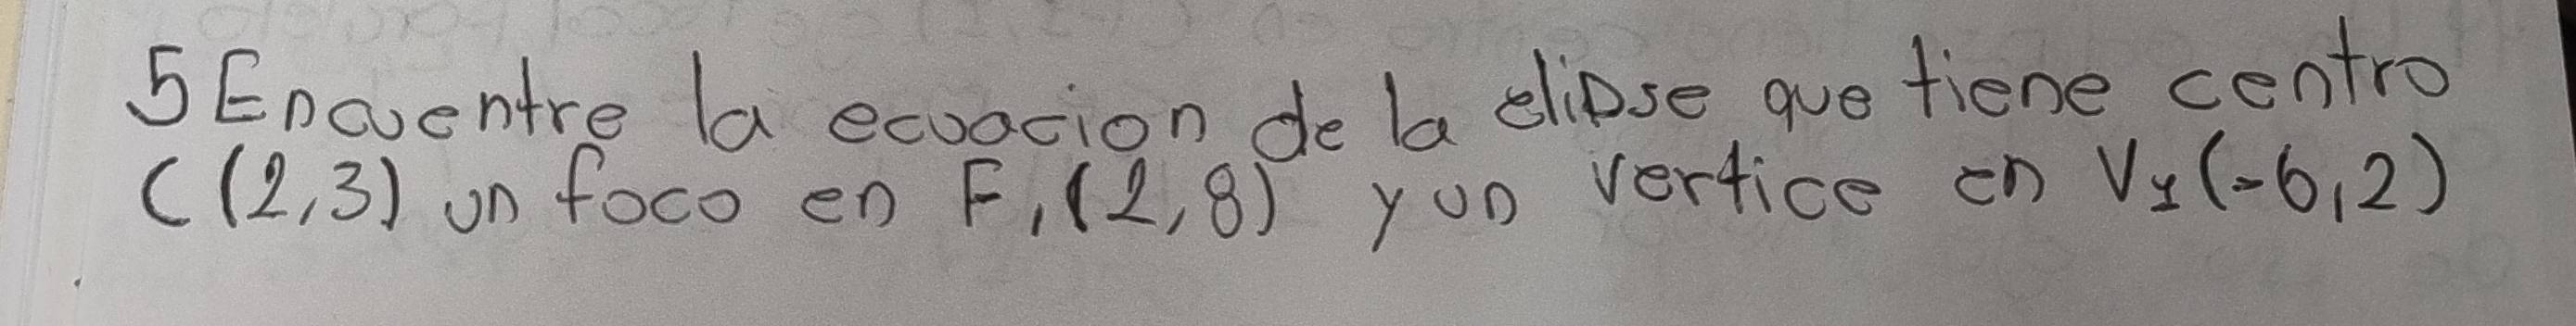 5 Encuentre la ecuacion de la elipse que tiene centro
C(2,3) un foco en F1(2,8) y un vertice en V1(-6,2)